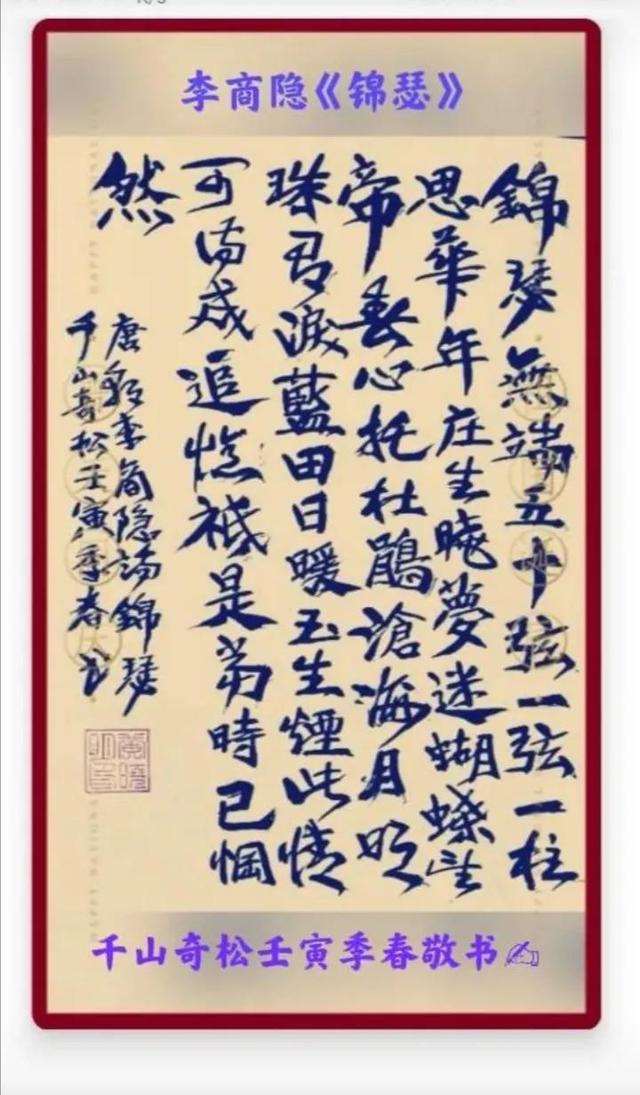 李商隐《锦瑟》
錦瑟無端五十弦一弦一柱
思華年庄生曉夢迷蝴蝶望
帝春心托杜鵑滄海月明
珠有淚藍田日暖玉生煙此情
可待成追憶衹是當時已惘
然
唐朝李商隐詩錦瑟
千山奇松壬寅季春书
千山奇松壬寅季春敬书✍